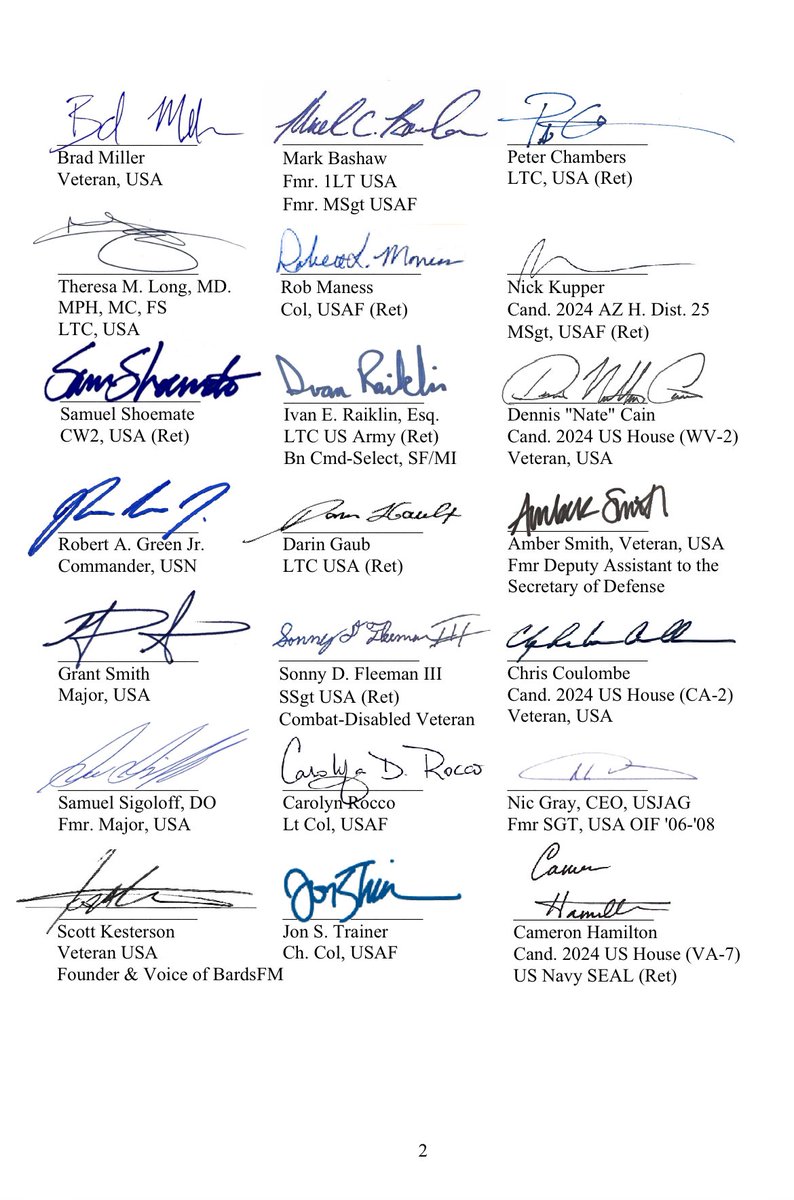 Brad Miller
Veteran, USA
Mark Bashaw
Fmr. 1LT USA
Fmr. MSgt USAF
Peter Chambers
LTC, USA (Ret)
Theresa M. Long, MD.
MPH, MC, FS
LTC, USA
Rob Maness
Col, USAF (Ret)
Nick Kupper
Cand. 2024 AZ H. Dist. 25
MSgt, USAF (Ret)
Sam Shoemate
Samuel Shoemate
CW2, USA (Ret)
Ivan Raiklin
Ivan E. Raiklin, Esq.
LTC US Army (Ret)
Bn Cmd-Select, SF/MI
Dennis "Nate" Cain
Cand. 2024 US House (WV-2)
Veteran, USA
Robert A. Green Jr.
Commander, USN
Darin Gaub
Darin Gaub
LTC USA (Ret)
Amber Smith
Amber Smith, Veteran, USA
Fmr Deputy Assistant to the
Secretary of Defense
Grant Smith
Major, USA
Sonny D Fleeman III
Sonny D. Fleeman III
SSgt USA (Ret)
Combat-Disabled Veteran
Chris Coulombe
Cand. 2024 US House (CA-2)
Veteran, USA
Samuel Sigoloff, DO
Fmr. Major, USA
Carolyn D. Rocco
Carolyn Rocco
Lt Col, USAF
Nic Gray, CEO, USJAG
Fmr SGT, USA OIF '06-'08
Scott Kesterson
Veteran USA
Founder & Voice of BardsFM
Jon S. Trainer
Ch. Col, USAF
Cameron
Hamilton
Cameron Hamilton
Cand. 2024 US House (VA-7)
US Navy SEAL (Ret)
2